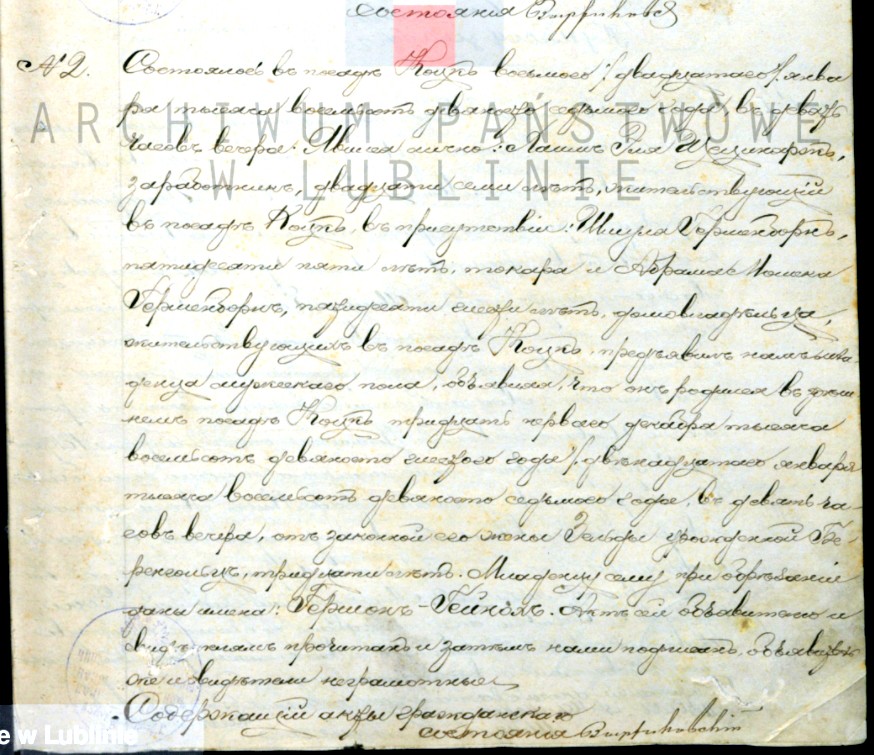 состоянія
№ 2. Состоялось въ посадѣ Коцкъ восьмого /двадцатаго/ янва
ря тысяча восемьсотъ девяносто седьмого года, въ девять
часовъ вечера. Явился лично:
заработникъ, двадцати семи лѣтъ, жительствующій
въ посадѣ Коцкъ, въ присутствіи: Шмуля
пятидесяти пяти лѣтъ, токаря и Абрама
пятидесяти шести лѣтъ, домовладѣльца,
жительствующихъ въ посадѣ Коцкъ, предъявилъ намъ мла-
денца мужескаго пола, объявляя, что онъ родился въ здѣш-
немъ посадѣ Коцкъ тридцать перваго декабря тысяча
восемьсотъ девяносто шестого года /двѣнадцатаго января
тысяча восемьсотъ девяносто седьмого года, въ девять ча-
совъ вечера, отъ законной его жены Зельды урожденной Бе-
ренгольцъ, тридцати лѣтъ. Младенцу сему при обрѣзаніи
даны имена: Гершонъ-Гейнохъ. Актъ сей объявителю и
свидѣтелямъ прочитанъ и затѣмъ нами подписанъ, объявитель
же и свидѣтели неграмотные
Содержащій акты гражданскаго
состоянія
ARCHIWUM PAŃSTWOWE
W LUBLINIE
e w Lublinie